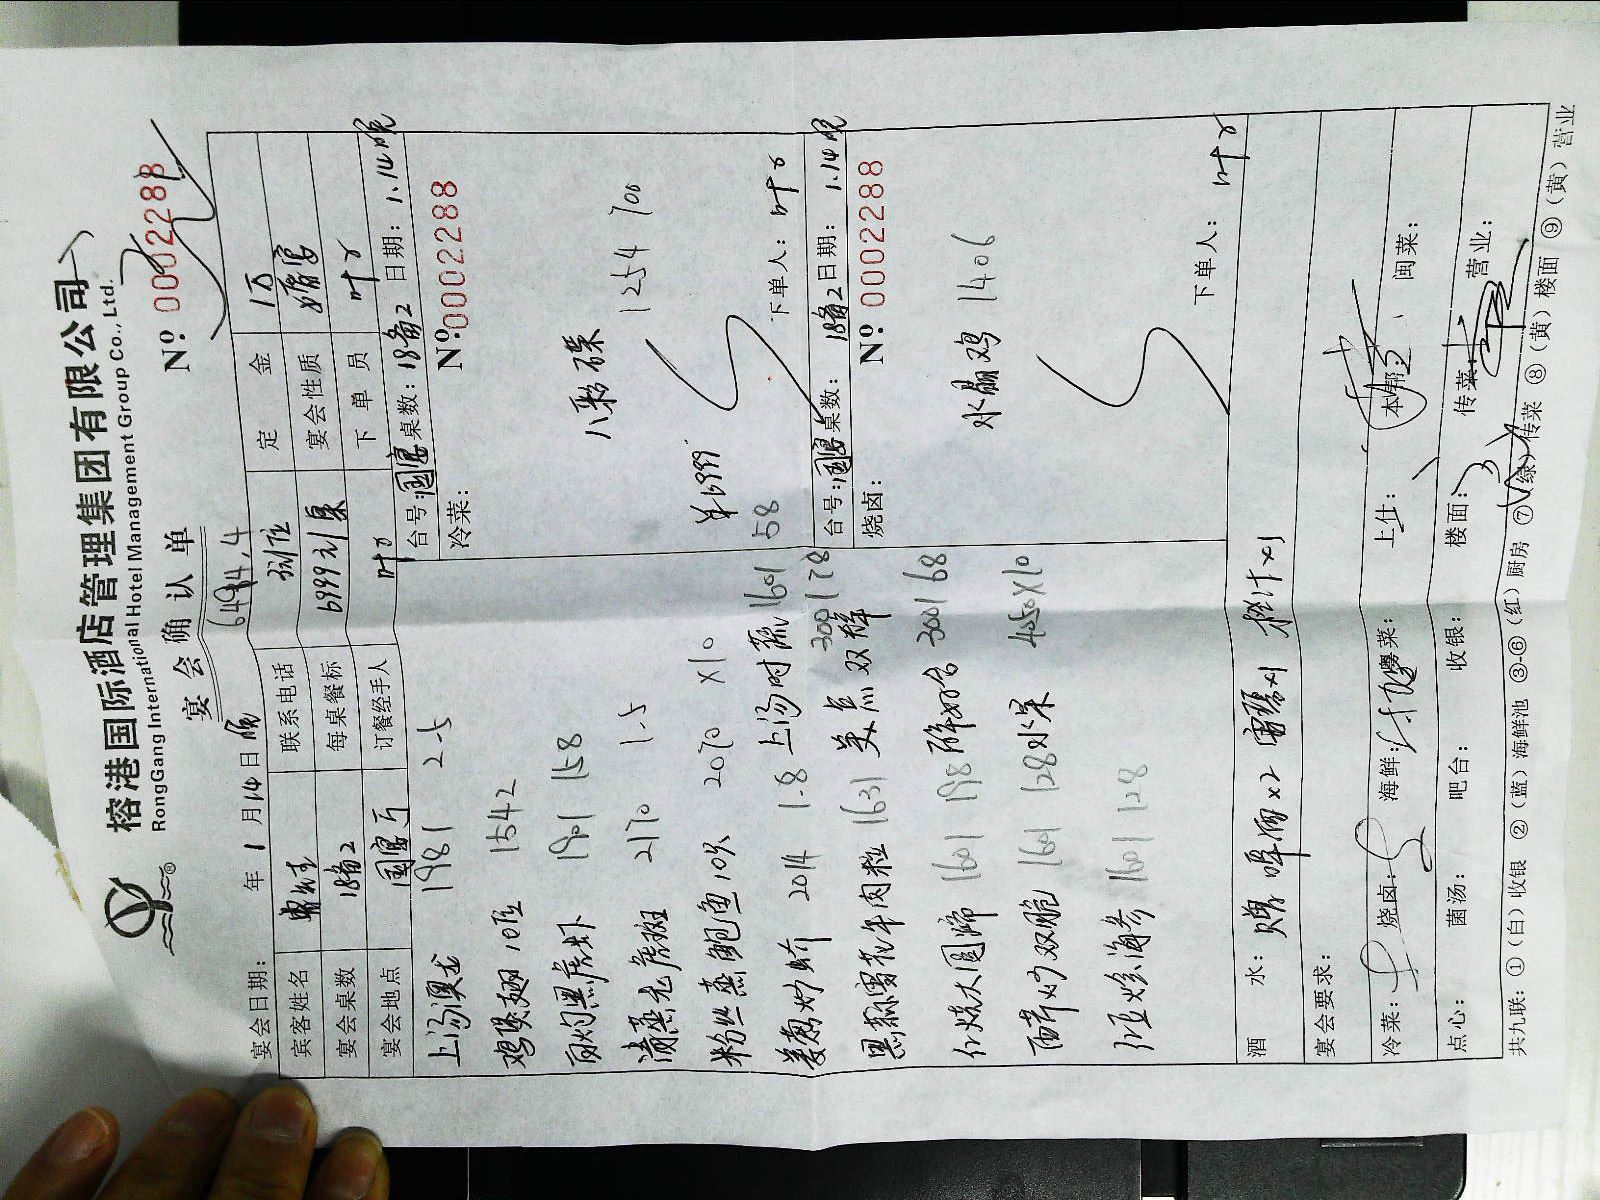 榕港国际酒店管理集团有限公司
RongGang International Hotel Management Group Co., Ltd.
宴会确认单
Nº 0002288
宴会日期: 年 1 月 14 日 晚
宾客姓名 联系电话 定金 1万
宴会桌数 18备2 每桌餐标 6999 宴会性质 婚宴
宴会地点 国宴厅 订餐经手人 叶 下单员 叶
上汤澳龙 1981 2-5
鸡煲翅10位 1542
白灼黑虎虾 1901 158
清蒸老虎斑 2170 1-5
粉丝蒸鲍鱼10只 2070 X10
姜葱炒蟳 2014 1-8
黑蒜雪花牛肉粒 1631
红烧大圆蹄 1601 198
西芹炒双脆 1601 128
红烩海参 1601 128
上汤时蔬 1601 58
美点双辉 300178
300168
水果
台号: 国宴 桌数: 18备2 日期: 1.14晚
冷菜: Nº: 0002288
八彩碟 1254 700
单6999
下单人: 叶
台号: 国宴 桌数: 18备2 日期: 1.14晚
烧卤: Nº 0002288
水晶鸡 1406
下单人: 叶
酒水: 赠 啤酒x2 雪碧x1 橙汁x1
宴会要求:
冷菜: 烧卤: 海鲜: 粤菜: 上什: 本帮: 闽菜:
点心: 菌汤: 吧台: 收银: 楼面: 传菜: 营业:
共九联: ①(白)收银 ②(蓝)海鲜池 ③-⑥(红)厨房 ⑦(绿)传菜 ⑧(黄)楼面 ⑨(黄)营业